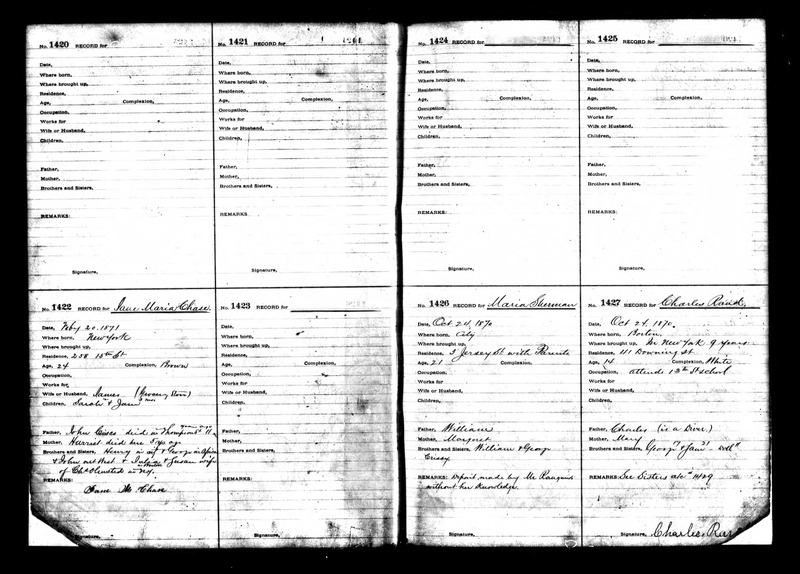 No. 1420 RECORD for
Date,
Where born,
Where brought up,
Residence,
Age, Complexion,
Occupation,
Works for
Wife or Husband,
Children,
Father,
Mother,
Brothers and Sisters,
REMARKS:
Signature,
No. 1421 RECORD for
Date,
Where born,
Where brought up,
Residence,
Age, Complexion,
Occupation,
Works for
Wife or Husband,
Children,
Father,
Mother,
Brothers and Sisters,
REMARKS:
Signature,
No. 1422 RECORD for Jane Maria Chase
Date, Feby 20. 1871
Where born, New York
Where brought up,
Residence, 208 15th St
Age, 24 Complexion, Brown
Occupation,
Works for
Wife or Husband, James
Children, Sarah & Jane
Father, John died in Thompson St
Mother, Harriet died here yrs ago
Brothers and Sisters, Henry in & George in
& John out West & & Susan wife
of Chs Olmsted in NY.
REMARKS:
Jane M Chase
Signature,
No. 1423 RECORD for
Date,
Where born,
Where brought up,
Residence,
Age, Complexion,
Occupation,
Works for
Wife or Husband,
Children,
Father,
Mother,
Brothers and Sisters,
REMARKS:
Signature,
No. 1424 RECORD for
Date,
Where born,
Where brought up,
Residence,
Age, Complexion,
Occupation,
Works for
Wife or Husband,
Children,
Father,
Mother,
Brothers and Sisters,
REMARKS:
Signature,
No. 1425 RECORD for
Date,
Where born,
Where brought up,
Residence,
Age, Complexion,
Occupation,
Works for
Wife or Husband,
Children,
Father,
Mother,
Brothers and Sisters,
REMARKS:
Signature,
No. 1426 RECORD for Maria Sherman
Date, Oct 24, 1870
Where born, City
Where brought up,
Residence, 3 Jersey St with Parents
Age, 21 Complexion,
Occupation,
Works for
Wife or Husband,
Children,
Father, William
Mother, Margaret
Brothers and Sisters, William & George
REMARKS: Deposit made by Mr
without her knowledge
Signature,
No. 1427 RECORD for Charles Rand,
Date, Oct 24, 1870.
Where born, Boston
Where brought up, In New York 9 years
Residence, 111 Downing st
Age, 14 Complexion, White
Occupation, attends 13th St school
Works for
Wife or Husband,
Children,
Father, Charles (is a Diver.)
Mother, Mary
Brothers and Sisters, George
REMARKS: See Sisters a/c
Signature, Charles